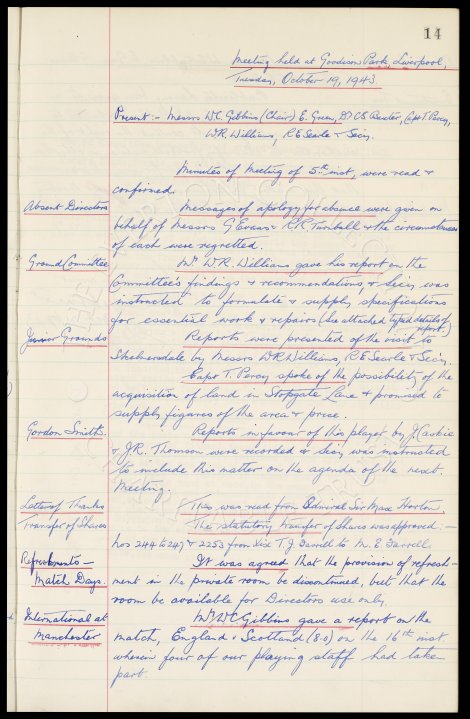 14
Meeting held at Goodison Park, Liverpool,
Tuesday, October 19, 1943
Present:- Messrs W.C. Gibbins (Chair) E. Green, Dr C.S. Baxter, Capt T. Percy,
W.R. Williams, R E Searle & Secy.
Minutes of Meeting of 5th inst, were read &
confirmed.
Absent Directors
Messages of apology for absence were given on
behalf of Messrs G Evans & R.R. Turnbull & the circumstances
of each were regretted.
Ground Committee
Mr W.R. Williams gave his report on the
Committee's findings & recommendations, & Secy was
instructed to formulate & supply specifications
for essential work & repairs (See attached typed details of
report.)
Junior Grounds
Reports were presented of the visit to
Skelmersdale by Messrs W R Williams, R E Searle & Secy.
Capt T. Percy spoke of the possibility of the
acquisition of land in Stopgate Lane & promised to
supply figures of the area & price.
Gordon Smith.
Reports in favour of this player by J.
& J.R. Thomson were recorded & Secy was instructed
to include this matter on the agenda of the next
Meeting.
Letter of Thanks
This was read from Admiral Sir Max Horton.
Transfer of Shares
The statutory transfer of shares was approved:-
Nos 244 to 247 & 2253 from T. J. Farrell to M. E. Farrell.
Refreshments -
Match Days.
It was agreed that the provision of refresh-
ment in the private room be discontinued, but that the
room be available for Directors use only.
International at
Manchester
Mr W C Gibbins gave a report on the
match, England v Scotland (8-0) on the 16th inst
wherein four of our playing staff had taken
part.